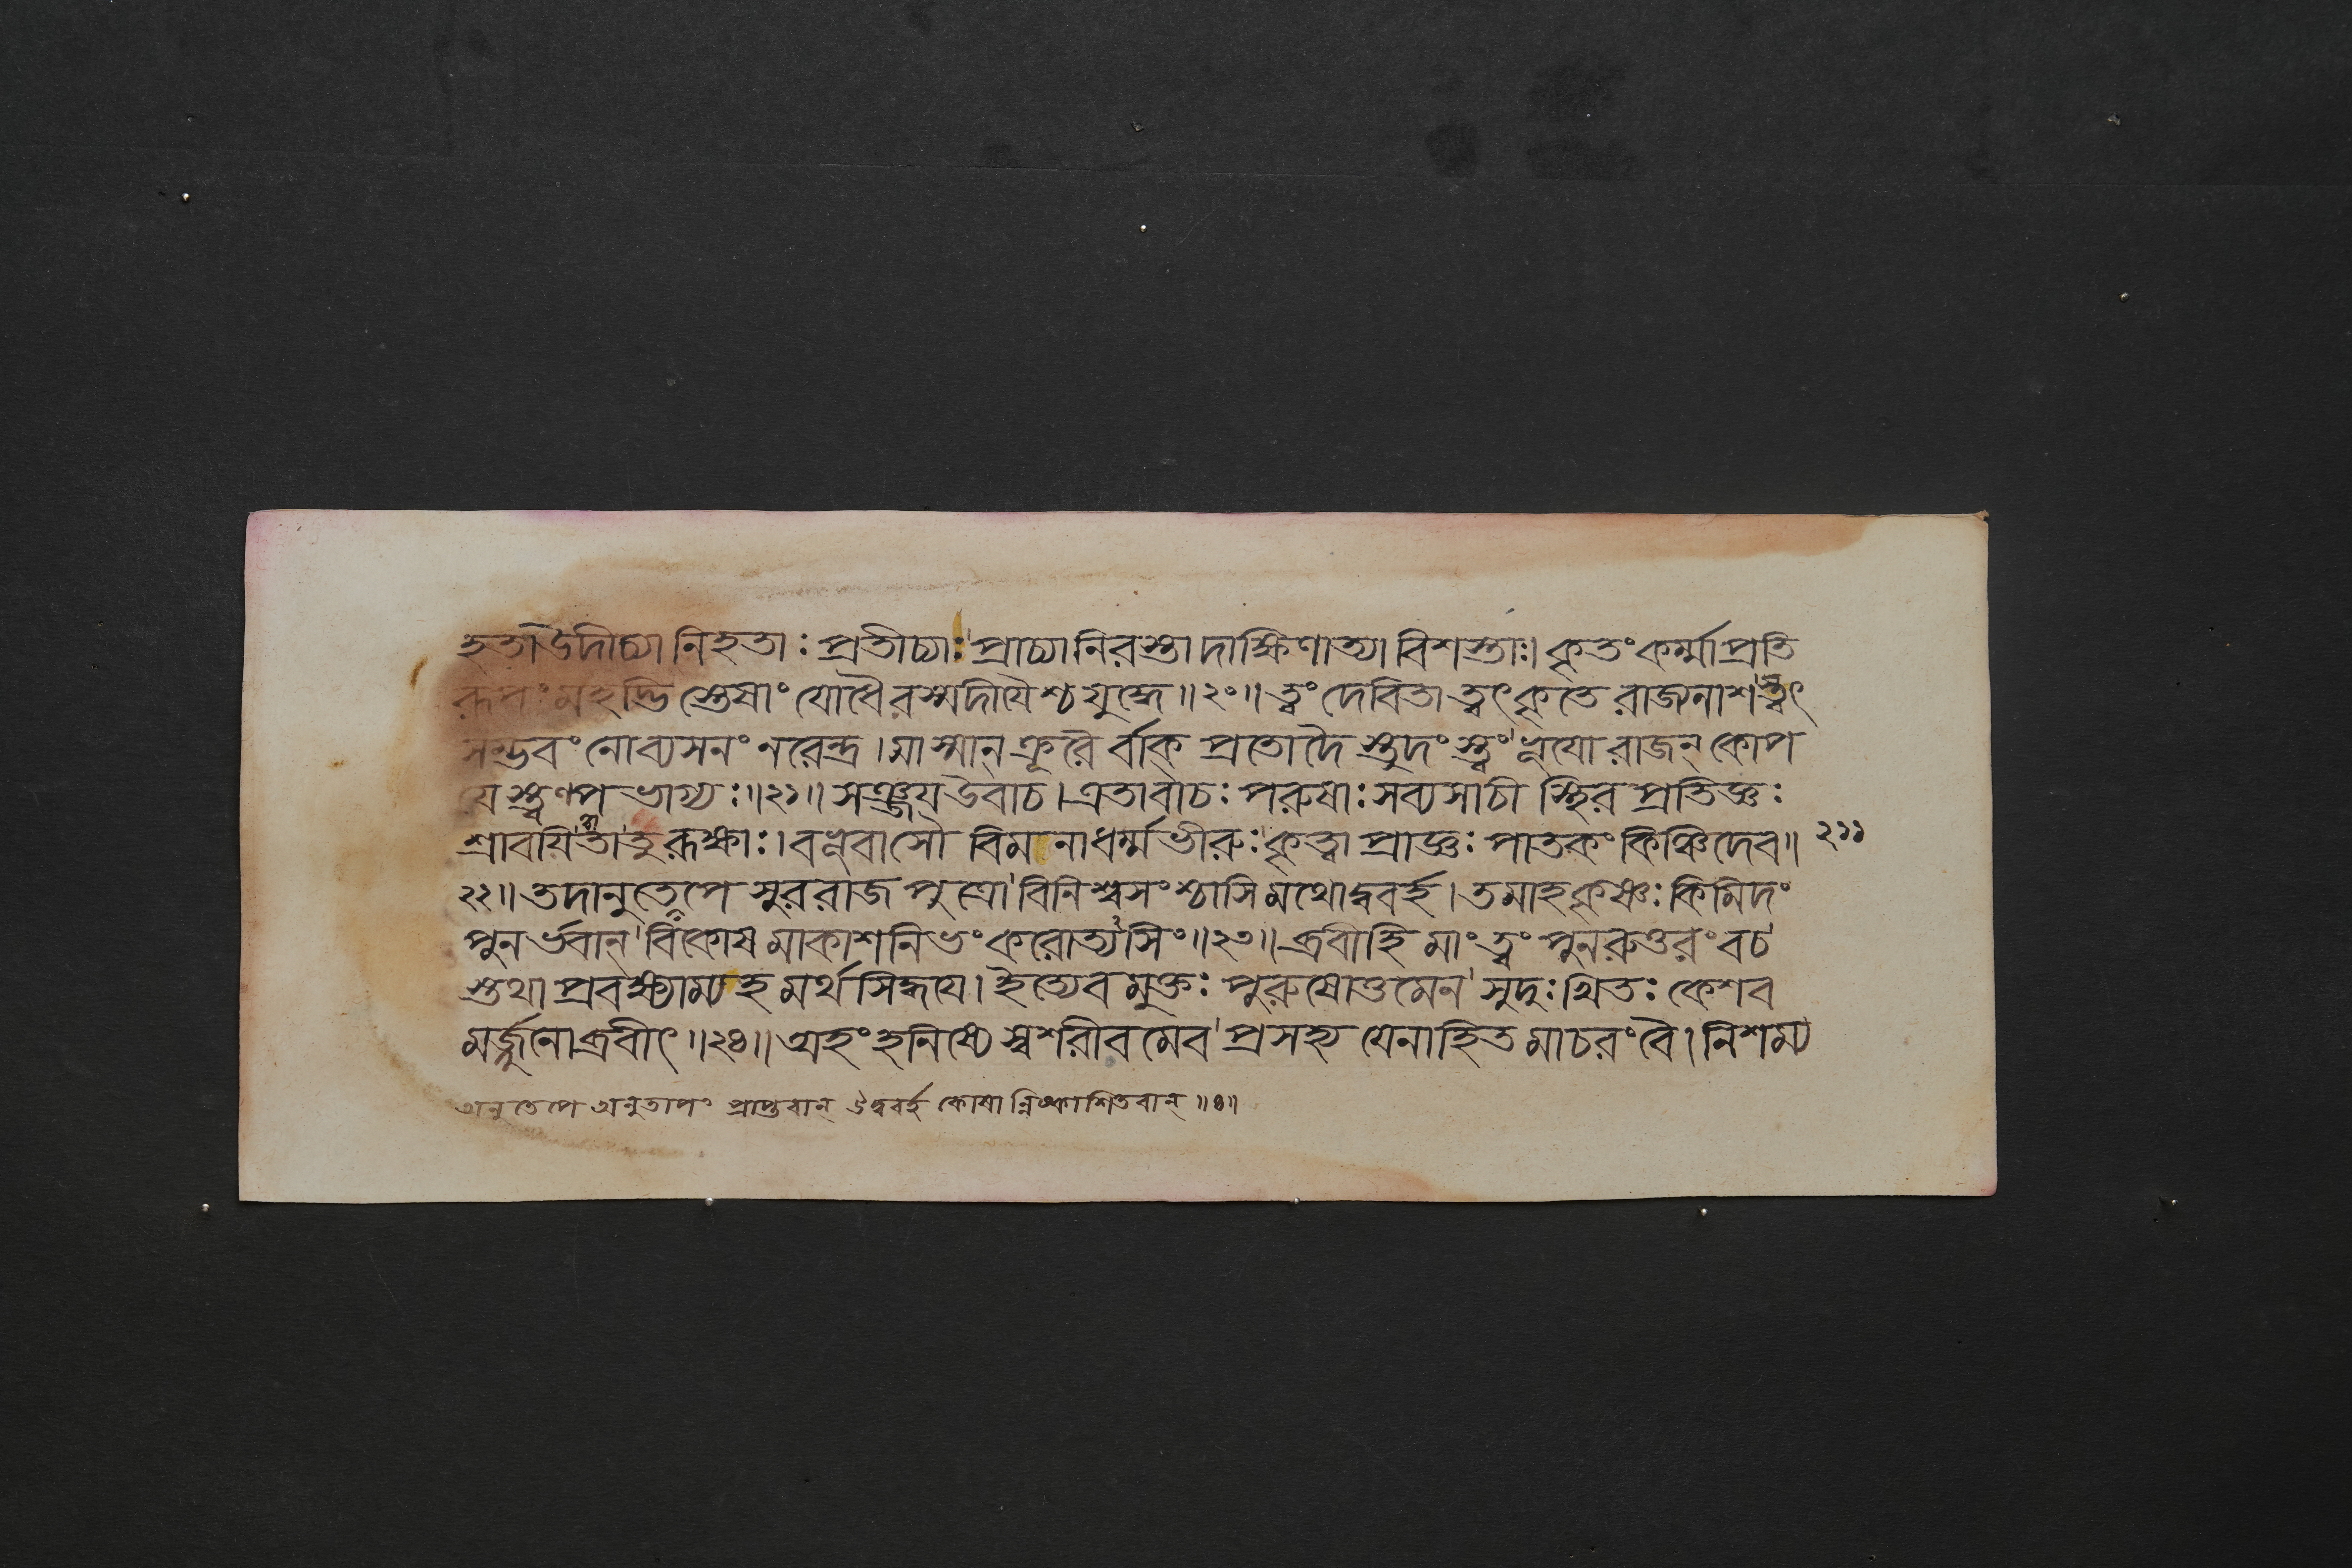 হতাউদীচ্যা নিহতাঃ প্রতীচ্যাঃ প্রাচ্যা নিরস্তা দাক্ষিণাত্যা বিশস্তাঃ। কৃতং কর্ম্মাপ্রতি
রূপং মহদ্ভি স্তেষাং যোধৈরস্মদীয়ৈশ্চ যুদ্ধে॥২০॥ ত্বং দেবিতা ত্বৎকৃতে রাজ্যনাশস্ত্বৎ
সম্ভবং নোব্যসনং নরেন্দ্র। মাস্মান্ ক্রূরৈ র্বাক্ প্রতোদৈ স্তুদংস্ত্বং ভূয়ো রাজন্ কোপ
যেস্ত্বল্পভাগ্যঃ॥২১॥ সঞ্জয়উবাচ। এতাবাচঃ পরুষাঃ সব্যসাচী স্থির প্রতিজ্ঞঃ
শ্রাবয়িত্বাতুরূক্ষাঃ। বভূবাসৌ বিমনাধর্ম্মভীরুঃ কৃত্বা প্রাজ্ঞঃ পাতকং কিঞ্চিদেব॥ ২১১
২২॥ তদানুতেপে সুররাজ পুত্রো বিনিশ্বসংশ্চাসি মথোদ্ববর্হ। তমাহকৃষ্ণঃ কিমিদং
পুনর্ভবান্ বিকোষ মাকাশনিভং করোত্যসিং॥২৩॥ ব্রবীহি মাং ত্বং পুনরুত্তরং বচ
স্তথা প্রবক্ষ্যাম্যহ মর্থসিদ্ধয়ে। ইত্যেব মুক্তঃ পুরুষোত্তমেন সুদুঃখিতঃ কেশব
মর্জ্জুনোব্রবীৎ॥২৪॥ অহং হনিষ্যে স্বশরীরমেব প্রসহ্য যেনাহিত মাচরং বৈ। নিশম্য
অনুতেপে অনুতাপং প্রাপ্তবান্ উদ্ববর্হ কোষান্নিষ্কাশিতবান্॥৪॥